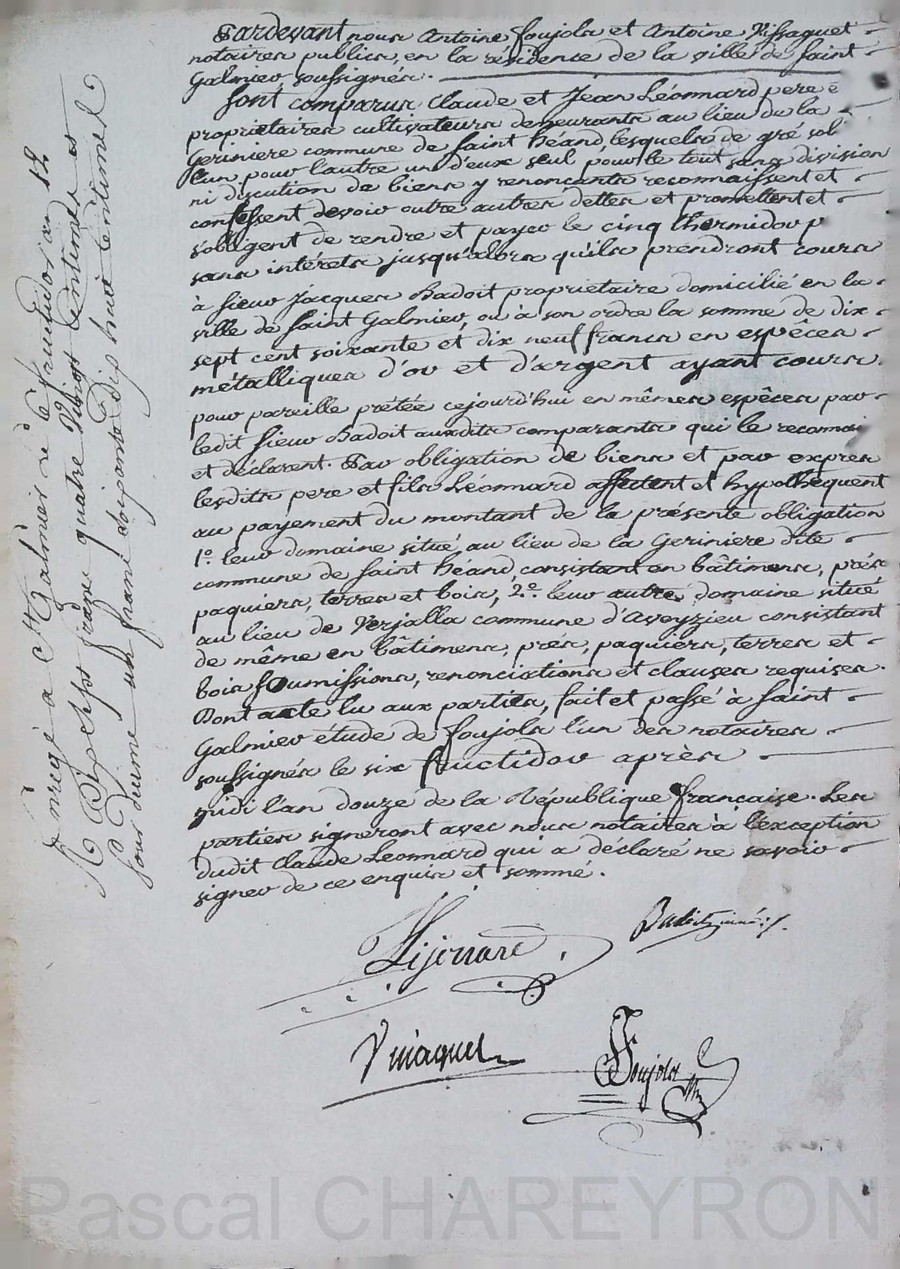 Pardevant nous Antoine Soujols et Antoine Vissaguet
notaires publics, en la résidence de la ville de Saint
Galmier, soussignés.
Sont comparus Claude et Jean Léonnard pere e
propriétaires cultivateurs demeurants au lieu de la
Geriniere commune de Saint héand, lesquels de gré sol
l'un pour l'autre un d'eux seul pour le tout sans division
ni discution de biens y renonçants reconnaissent et
confessent devoir outre autres dettes et promettent et
s'obligent de rendre et payer le cinq thermidor p
sans intérets jusqu'alors qu'ils prendront cours
à sieur Jacques Badoit propriétaire domicilié en la
ville de Saint Galmier, ou à son ordre la somme de dix
sept cent soixante et dix neuf francs en espèces
métalliques d'or et d'argent ayant cours.
pour pareille prêtée cejourd'hui en mêmes espêces par
ledit sieur Badoit auxdits comparants qui le reconnai
et déclarent. Par obligation de biens et par exprès
lesdits pere et fils Léonnard affectent et hypothèquent
au payement du montant de la présente obligation
1º. leur domaine situé au lieu de la Geriniere dite
commune de Saint héand consistant en bâtimens, prés
paquiers, terres et bois, 2º. leur autre domaine situé
au lieu de Verjalla commune d'Aveyzieu consistant
de même en bâtimens, prés, paquiers, terres et
bois soumissions, renonciations et clauses requises.
Dont acte lu aux parties, fait et passé à Saint
Galmier étude de Soujols l'un des notaires
soussignés le six fructidor après
midi l'an douze de la République française. Les
parties signeront avec nous notaires à l'exception
dudit Claude Léonnard qui a déclaré ne savoir
signer de ce enquis et sommé.
Badoit
Soujols
Enregé a St Galmier le 6 fructidor an 12
R dix sept francs quatre vingt centimes et
pour dixme un franc soixante dix huit centimes
Pascal CHAREYRON